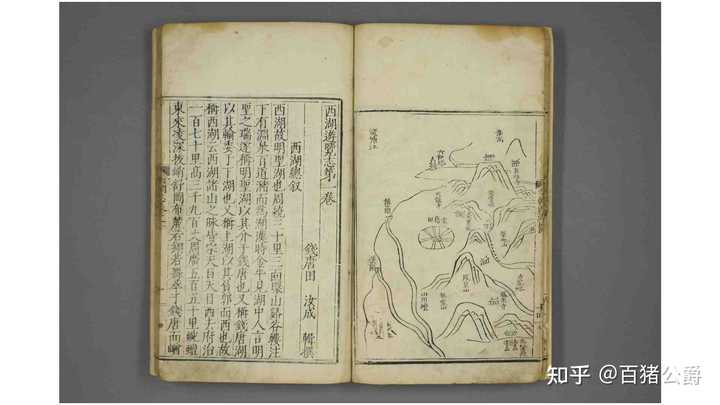 六和塔
鳳凰山
山川壇
西湖遊覽志第一卷
錢唐田 汝成 輯撰
西湖總叙
西湖故明聖湖也周繞三十里三面環山谿谷縷注
下有淵泉百道瀦而爲湖漢時金牛見湖中人言明
聖之瑞遂稱明聖湖以其介于錢唐也又稱錢唐湖
以其輸委于下湖也又稱上湖以其負郭而西也故
稱西湖云西湖諸山之脉皆宗天目天目西去府治
一百七十里高三千九百丈周廣五百五十里蜿蟺
東來凌深拔峭舒岡布麓若翔若舞萃于錢唐而崷
知乎 @百猪公爵